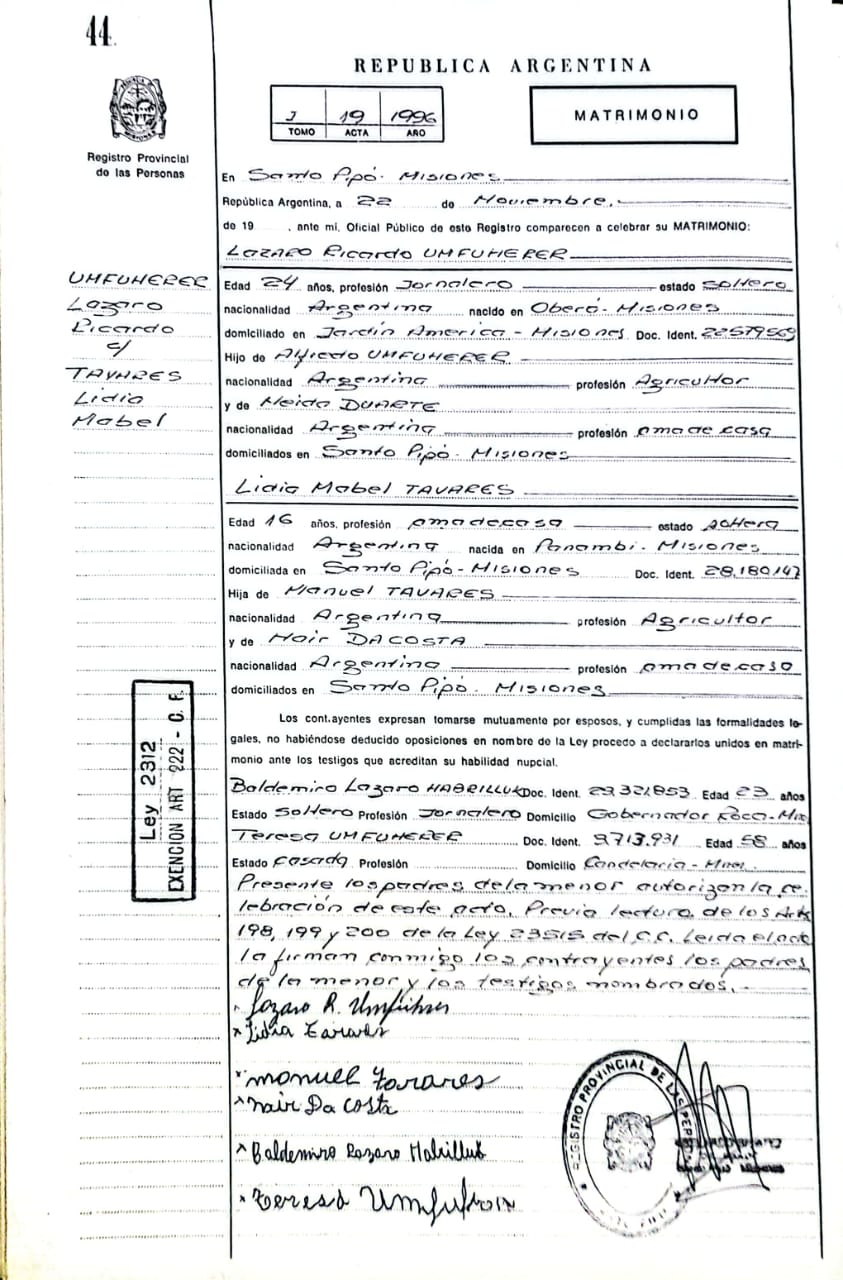 44.
REPUBLICA ARGENTINA
J 19 1996
TOMO ACTA AÑO
MATRIMONIO
Registro Provincial
de las Personas
En Santo Pipó - Misiones
República Argentina, a 22 de Noviembre.
de 19 , ante mi, Oficial Público de este Registro comparecen a celebrar su MATRIMONIO:
Lazaro Ricardo UMFUHERER
UMFUHERER
Lazaro
Ricardo
c/
TAVARES
Lidia
Mabel
Edad 24 años, profesión Jornalero estado soltero
nacionalidad Argentina nacido en Oberá - Misiones
domiciliado en Jardín America - Misiones Doc. Ident. 22579569
Hijo de Alfredo UMFUHERER
nacionalidad Argentina profesión Agricultor
y de Neida DUARTE
nacionalidad Argentina profesión ama de casa
domiciliados en Santo Pipó - Misiones
Lidia Mabel TAVARES
Edad 16 años, profesión ama de casa estado soltera
nacionalidad Argentina nacida en Panambi - Misiones
domiciliada en Santo Pipó - Misiones Doc. Ident. 28.180.147
Hija de Manuel TAVARES
nacionalidad Argentina profesión Agricultor
y de Nair DA COSTA
nacionalidad Argentina profesión ama de casa
domiciliados en Santo Pipó - Misiones
Los cont.ayentes expresan tomarse mutuamente por esposos, y cumplidas las formalidades le-
gales, no habiéndose deducido oposiciones en nombre de la Ley procedo a declararlos unidos en matri-
monio ante los testigos que acreditan su habilidad nupcial.
Ley 2312
EXENCIÓN ART 222 - C. F.
Baldemiro Lazaro HABRILLUK Doc. Ident. 23.321.853 Edad 23 años
Estado soltero Profesión Jornalero Domicilio Gobernador Roca - Mis
Teresa UMFUHERER Doc. Ident. 9.713.931 Edad 58 años
Estado casada Profesión Domicilio Candelaria - Mnes.
Presente los padres de la menor autorizan la ce-
lebración de este acto. Previa lectura de los Arts
198, 199 y 200 de la Ley 23515 del C.C. Leida el acta
la firman conmigo los contrayentes los padres
de la menor y los testigos nombrados.-
Lazaro R. Umfuhrer
x Lidia Tavares
x Manuel Tavares
x Nair Da Costa
x Baldemiro Lazaro Habrilluk
x Teresa
REGISTRO PROVINCIAL DE LAS PERSONAS